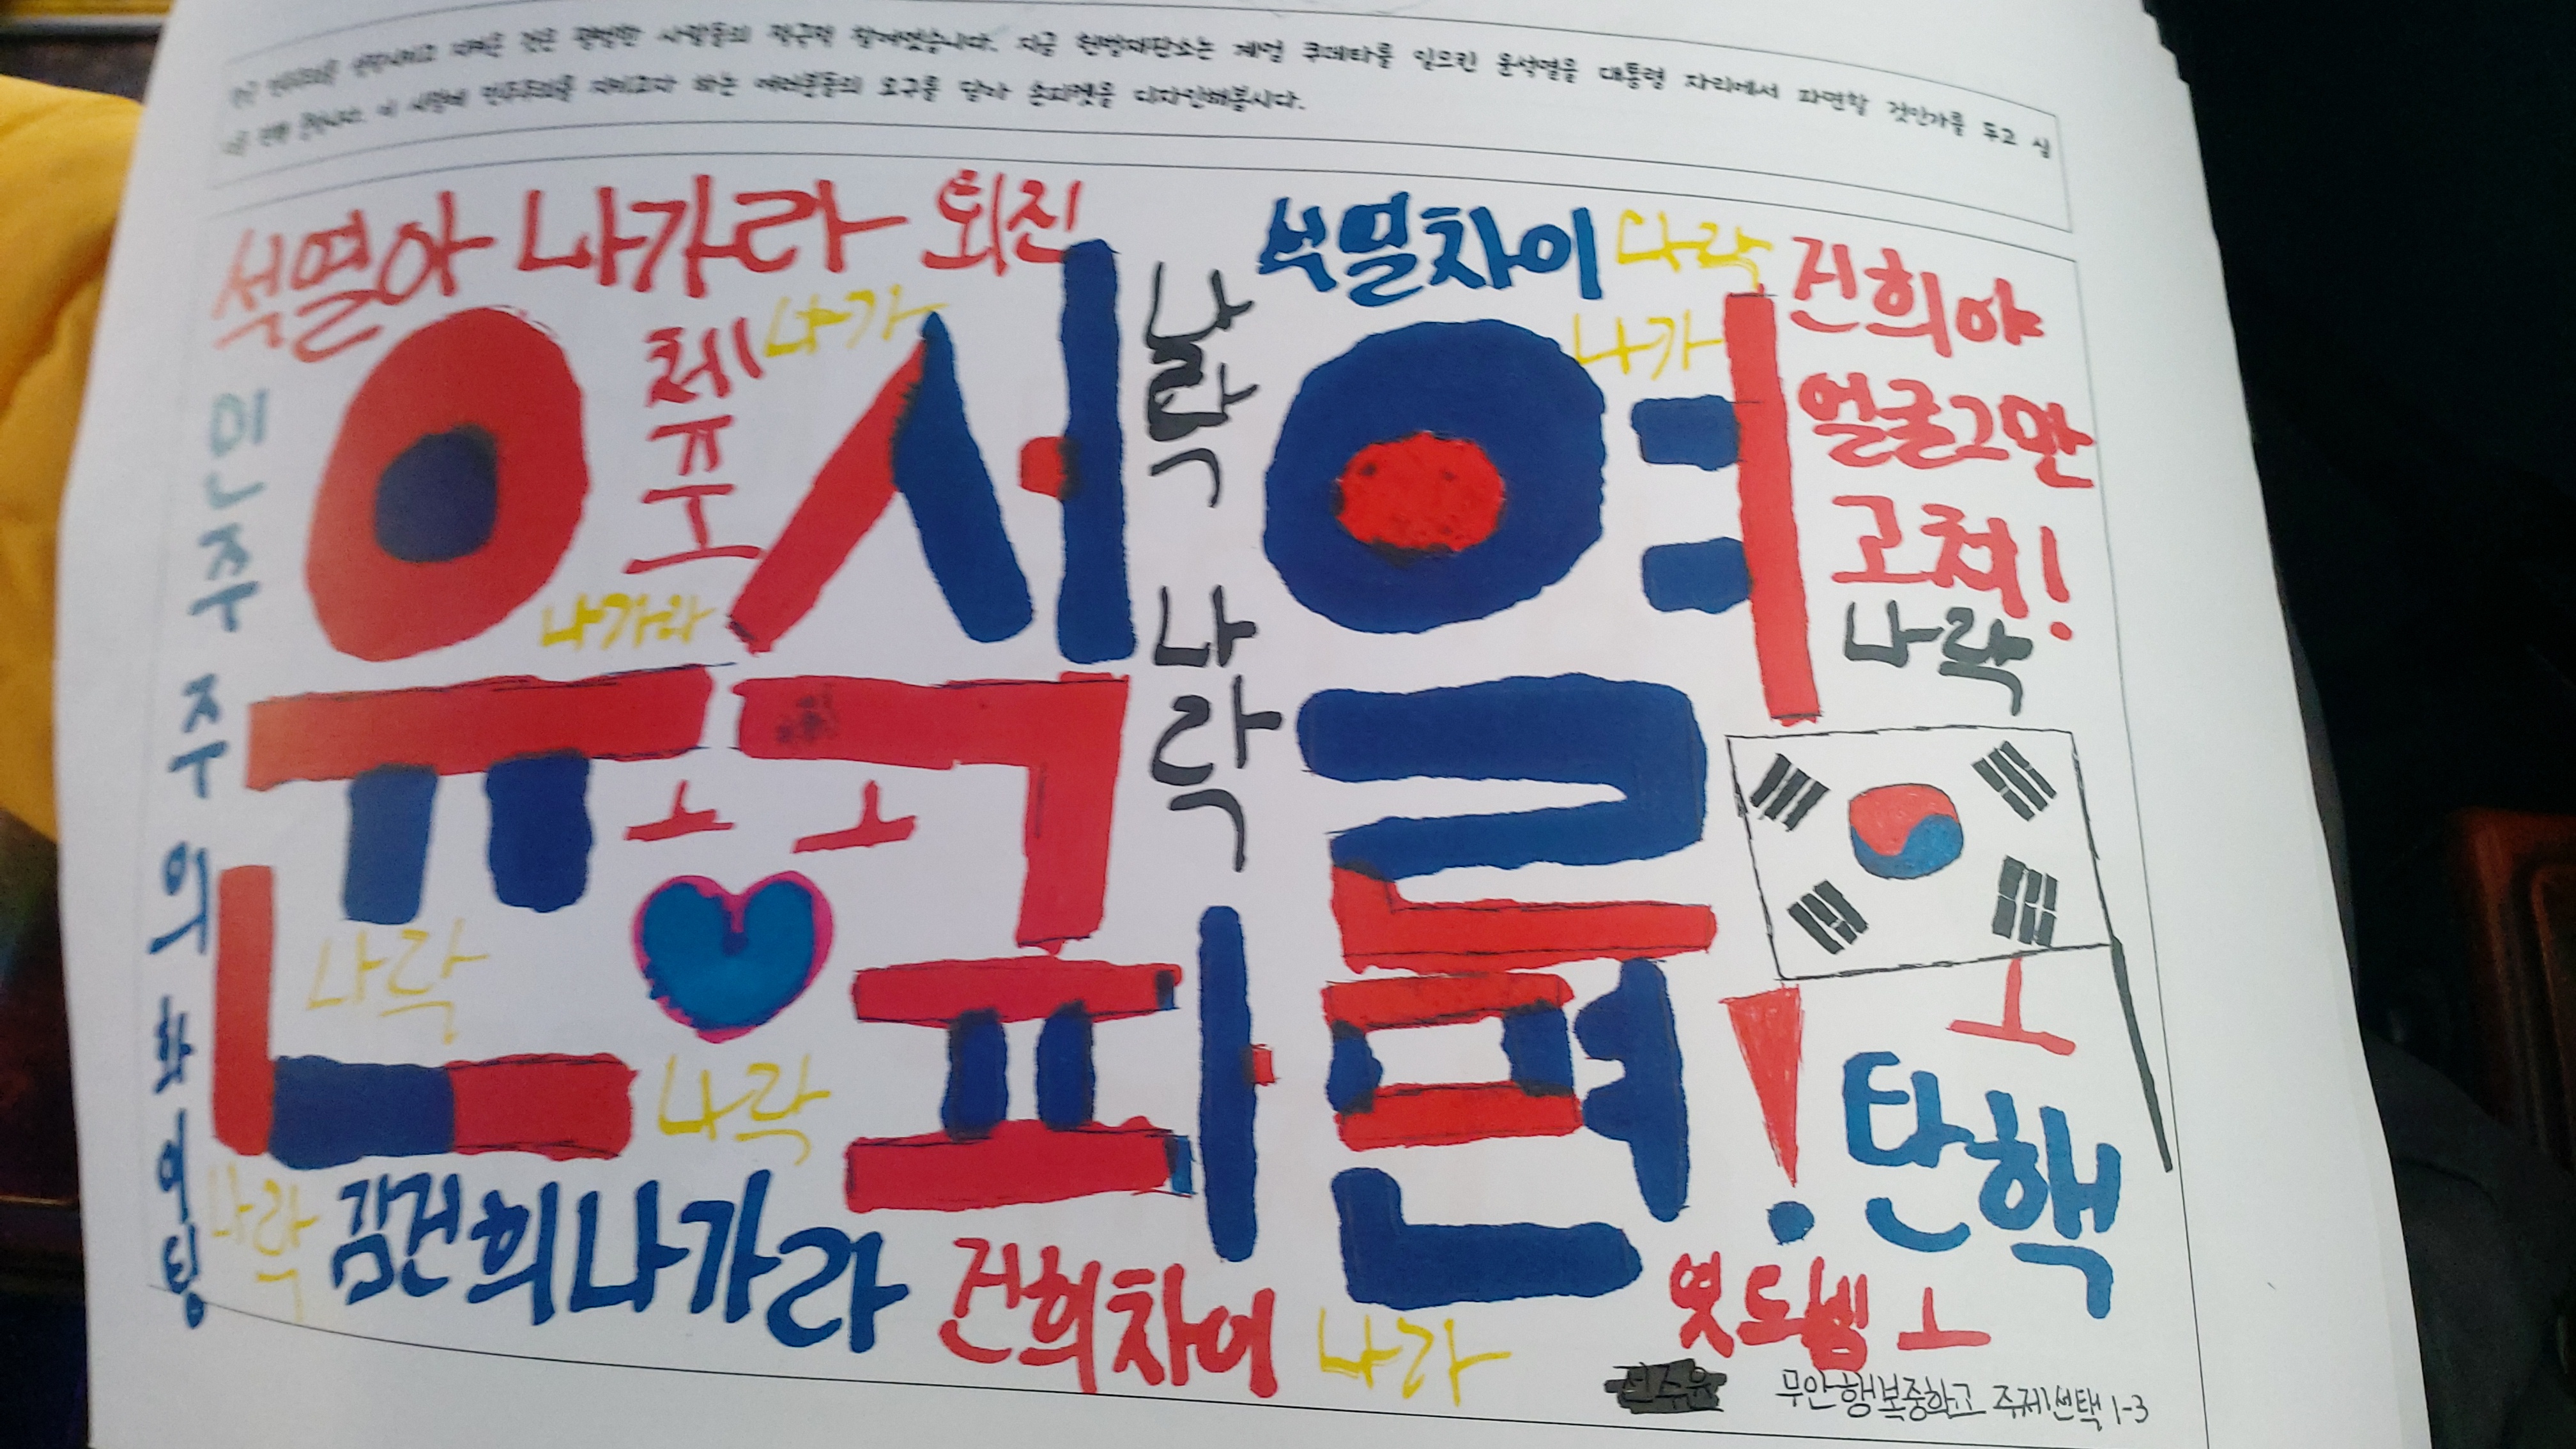 한국 민주주의를 지켜온 것은 평범한 사람들의 참여였습니다. 지금 헌법재판소는 계엄 쿠데타를 일으킨 윤석열을 대통령 자리에서 파면할 것인가를 두고 심
이 시점에 민주주의를 지키고자 하는 여러분들의 요구를 담아 손피켓을 디자인해봅시다.
석열아 나가라 퇴진
석열차이 나락
건희야
얼굴그만
고쳐!
나락
나가
나가
체
ㅠ
ㅗ
나락
나락
나가라
민주주의 화이팅
윤석열
파면!
ㅗ ㅗ
나락
나락
나락
ㅗ
탄핵
김건희나가라
건희차이
나가
엿도벰ㅗ
무안행복중학교 주제선택 1-3